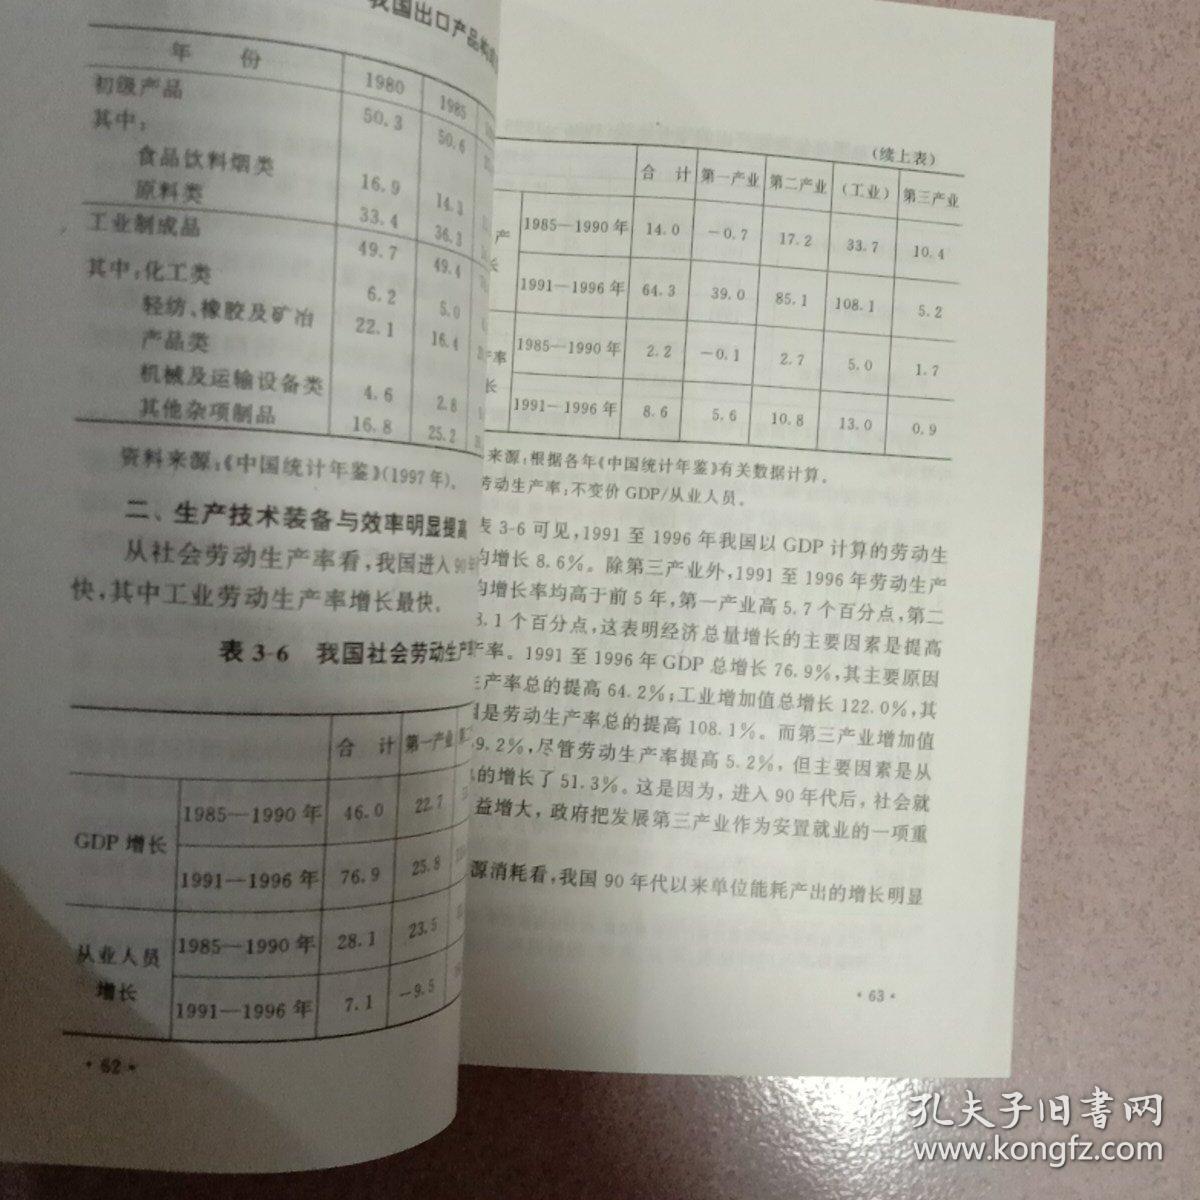 我国出口产品
年 份 1980 1985
初级产品 50.3 50.6
其中：
食品饮料烟类 16.9 14.3
原料类 33.4 36.3
工业制成品 49.7 49.4
其中：化工类 6.2 5.0
轻纺、橡胶及矿冶 22.1 16.4
产品类
机械及运输设备类 4.6 2.8
其他杂项制品 16.8 25.2
资料来源：《中国统计年鉴》（1997年）。
二、生产技术装备与效率明显提高
从社会劳动生产率看，我国进入90年
快，其中工业劳动生产率增长最快。
表 3-6 我国社会劳动生产
合 计 第一产业
GDP 增长 1985—1990年 46.0 22.7
1991—1996年 76.9 25.8
从业人员 1985—1990年 28.1 23.5
增长 1991—1996年 7.1 -9.5
·62·
（续上表）
合 计 第一产业 第二产业 （工业） 第三产业
产 1985—1990年 14.0 -0.7 17.2 33.7 10.4
长 1991—1996年 64.3 39.0 85.1 108.1 5.2
产率 1985—1990年 2.2 -0.1 2.7 5.0 1.7
长 1991—1996年 8.6 5.6 10.8 13.0 0.9
来源：根据各年《中国统计年鉴》有关数据计算。
劳动生产率：不变价 GDP/从业人员。
表 3-6 可见，1991 至 1996 年我国以 GDP 计算的劳动生
均增长 8.6%。除第三产业外，1991 至 1996 年劳动生产
均增长率均高于前 5 年，第一产业高 5.7 个百分点，第二
8.1 个百分点，这表明经济总量增长的主要因素是提高
产率。1991 至 1996 年 GDP 总增长 76.9%，其主要原因
生产率总的提高 64.2%；工业增加值总增长 122.0%，其
因是劳动生产率总的提高 108.1%。而第三产业增加值
9.2%，尽管劳动生产率提高 5.2%，但主要因素是从
的增长了 51.3%。这是因为，进入 90 年代后，社会就
益增大，政府把发展第三产业作为安置就业的一项重
源消耗看，我国 90 年代以来单位能耗产出的增长明显
·63·
孔夫子旧书网
www.kongfz.com